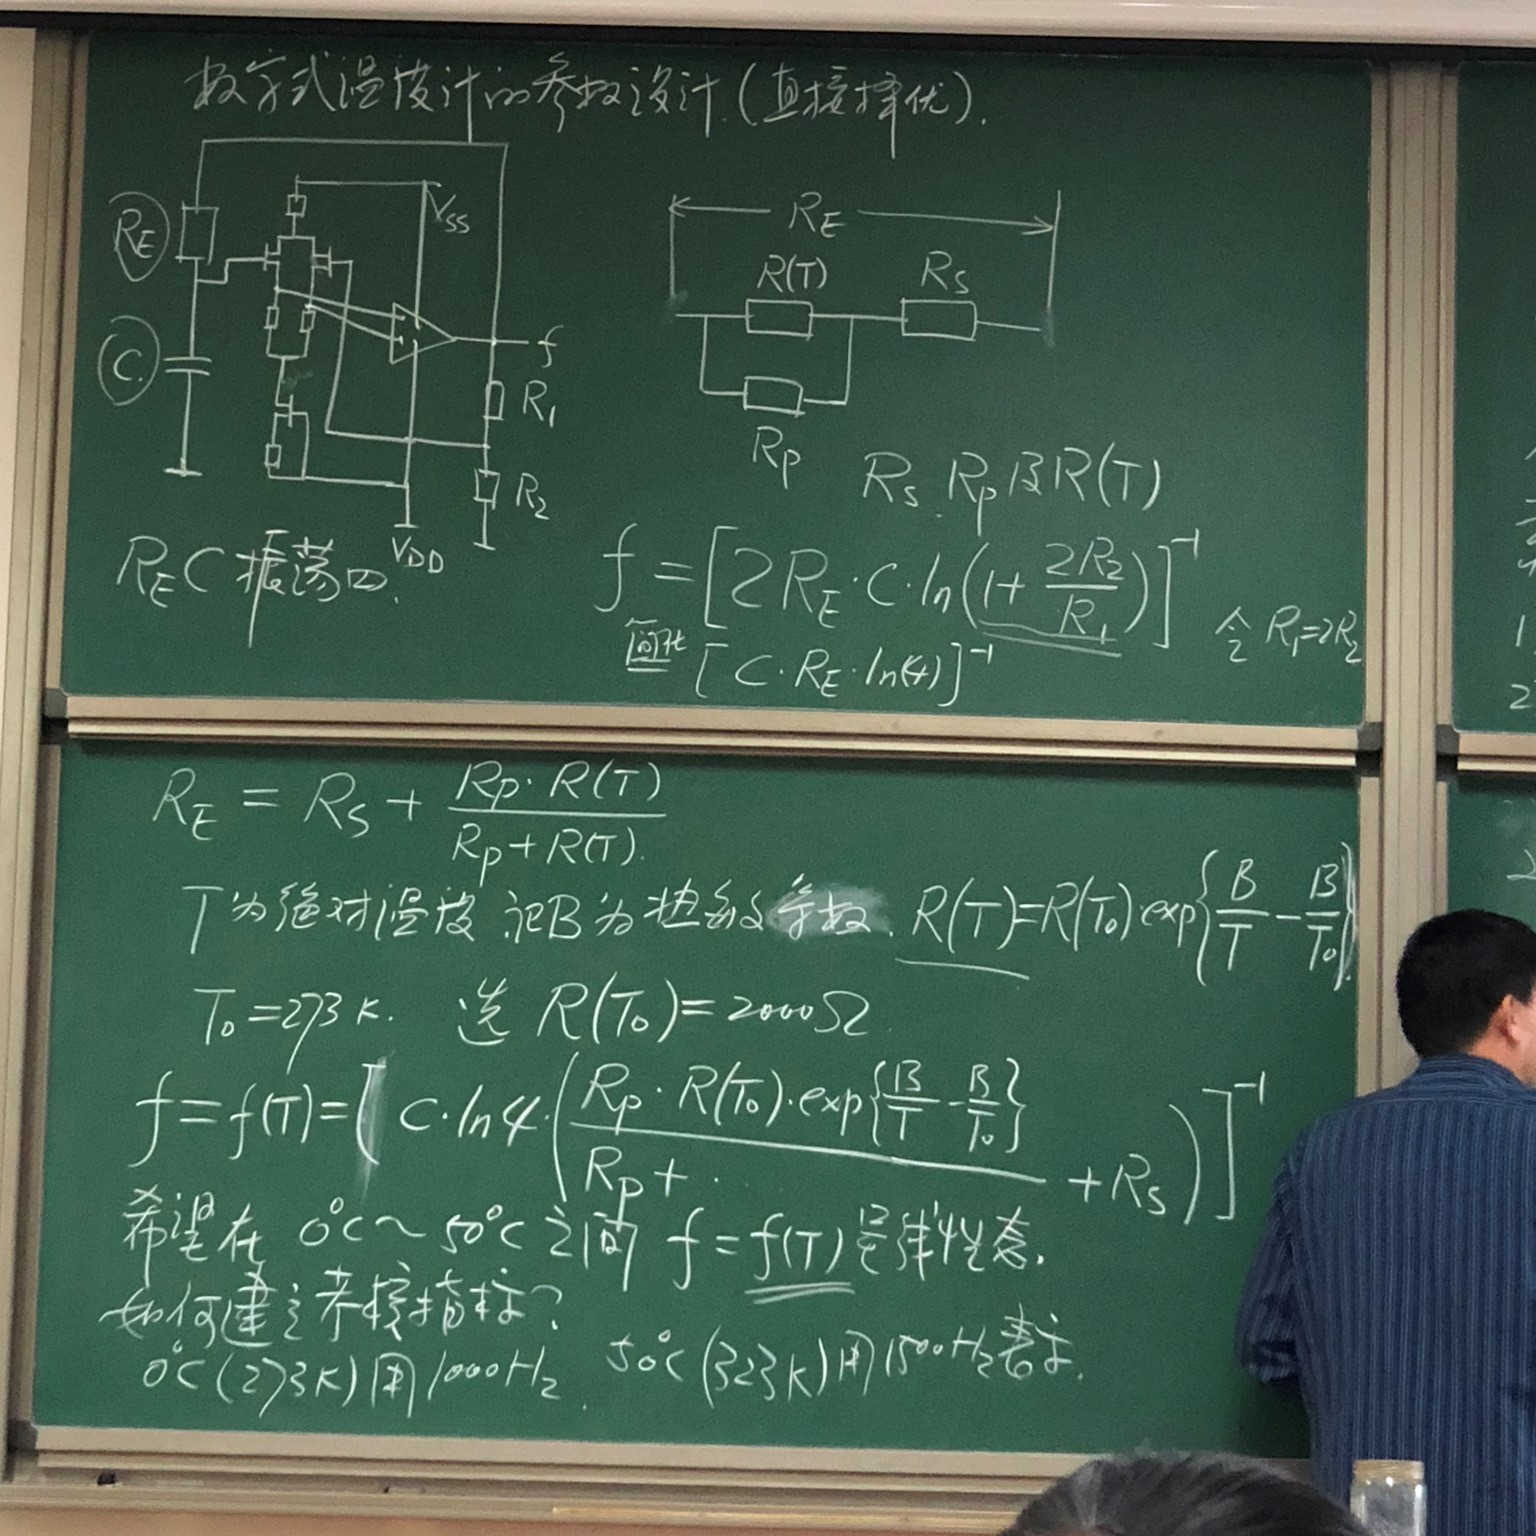 数字式温度计的参数设计.(直接择优).
RE
C.
VSS
f
R1
R2
VDD
REC 振荡回.
RE
R(T) Rs
Rp
Rs、Rp及R(T)
f = [2RE·C·ln(1+2R2/R1)]^-1 令 R1=2R2
简化 [C·RE·ln(4)]^-1
RE = Rs + Rp·R(T)/Rp+R(T).
T为绝对温度,记B为热敏参数. R(T)=R(T0)·exp{B/T-B/T0}.
T0=273K. 选 R(T0)=2000Ω.
f=f(T)=[C·ln4·(Rp·R(T0)·exp{B/T-B/T0}/Rp+... +Rs)]^-1
希望在 0°C~50°C之间 f=f(T)呈线性态.
如何建立考核指标?
0°C(273K)用1000Hz. 50°C(323K)用1500Hz表示.